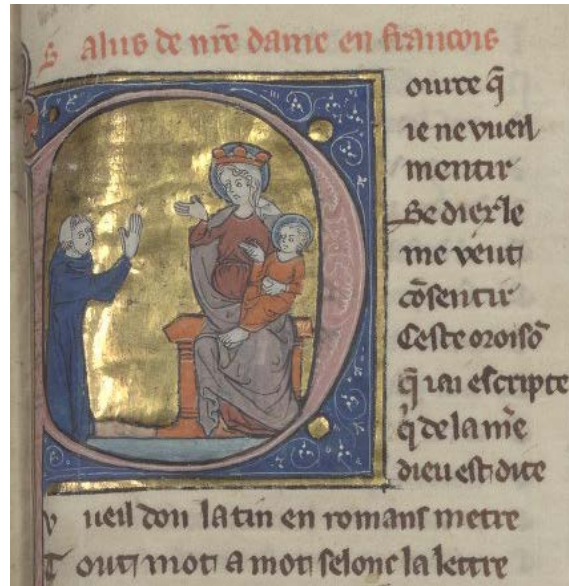 S alus de nr̄e dame en francois
ource q̄
ie ne vueil
mentir
Se diex le
me veut
cōsentir
Ceste oroisō
q̄ iai escripte
q̄ de la mẽ
dieu est dite
V ueil dou latin en romans metre
T out mot a mot selonc la lettre